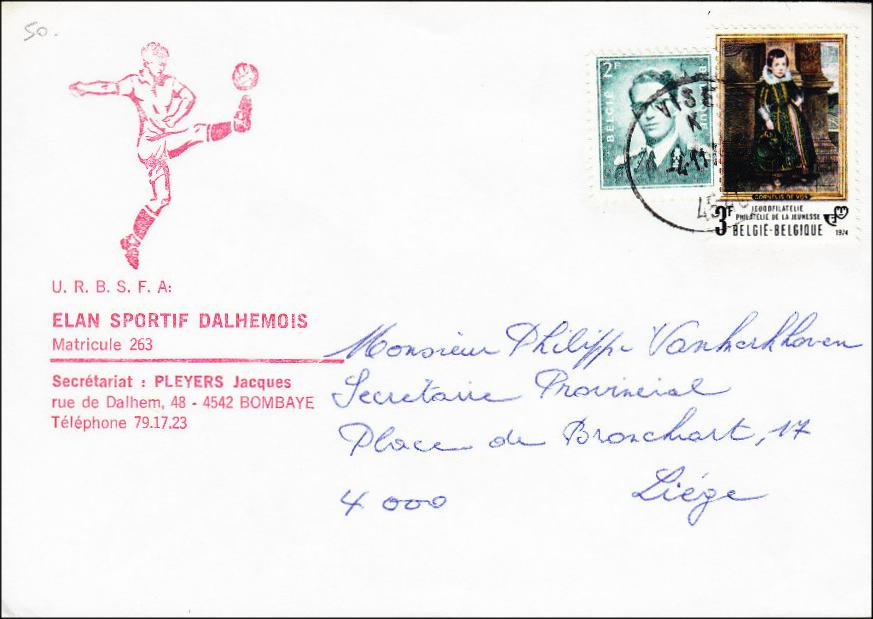 50.
2F
BELGIË
BELGIQUE
VISE
4-11
45
CORNELIS DE VOS
3F
JEUGDFILATELIE
PHILATÉLIE DE LA JEUNESSE
BELGIË-BELGIQUE
1974
U. R. B. S. F. A:
ELAN SPORTIF DALHEMOIS
Matricule 263
Secrétariat : PLEYERS Jacques
rue de Dalhem, 48 - 4542 BOMBAYE
Téléphone 79.17.23
Monsieur Philippe Vankerkhoven
Secretaire Provincial
Place de Bronckart, 17
4000 Liége